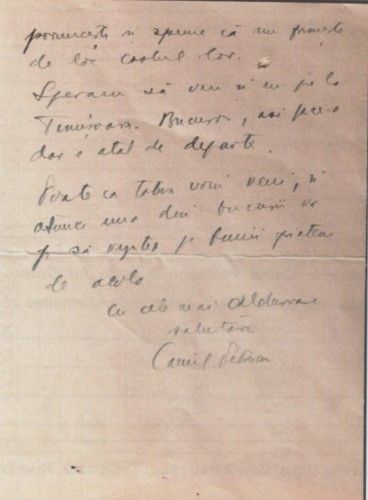 porunceste si spune că nu primeste
de loc costul lor.
Speram să vin si eu pe la
Timisoara. Bucuros, asi
dar e atat de departe.
Poate ca totusi voiu veni, si
atunci una din bucurii va
fi să pe bunii prieteni
de acolo
Cu cele mai călduroase
salutări
Camil Petrescu